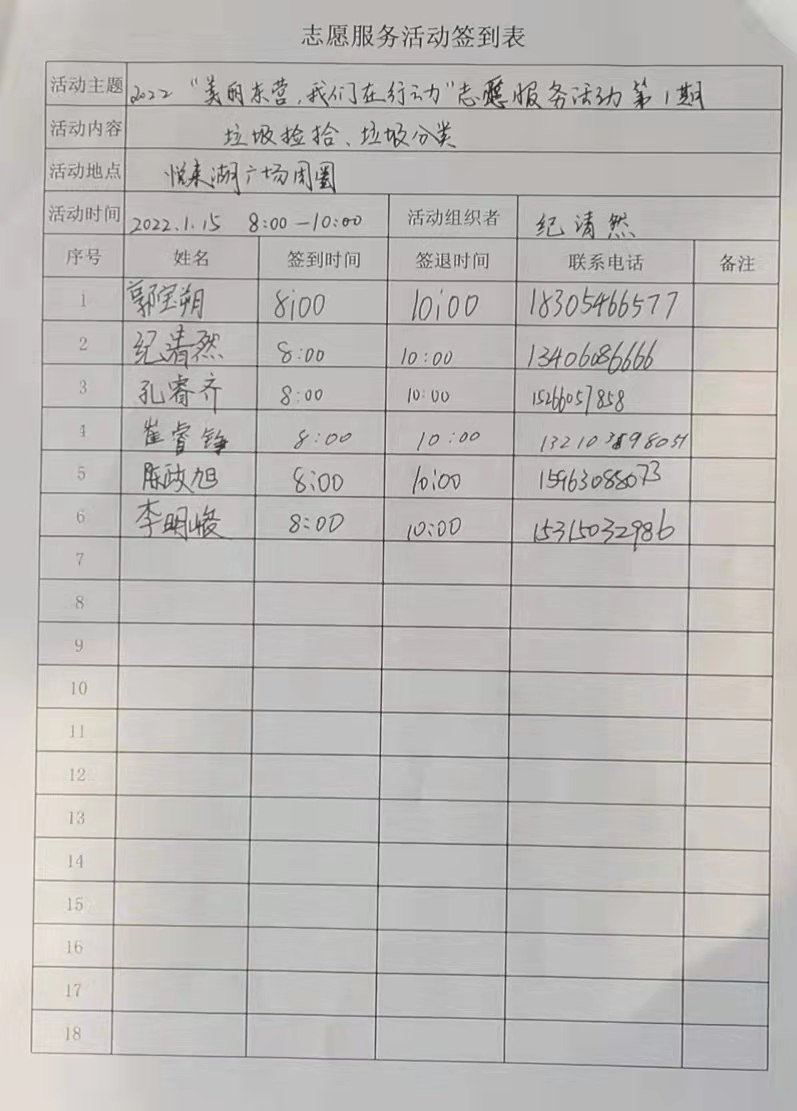 志愿服务活动签到表
活动主题 2022 "美丽东营,我们在行动"志愿服务活动第1期
活动内容 垃圾捡拾、垃圾分类
活动地点 悦来湖广场周围
活动时间 2022.1.15 8:00-10:00 活动组织者 纪清然
序号 姓名 签到时间 签退时间 联系电话 备注
1 郭宝朔 8:00 10:00 18305466577
2 纪清然 8:00 10:00 13406086666
3 孔睿齐 8:00 10:00 15266057858
4 崔睿铮 8:00 10:00
5 陈政旭 8:00 10:00 15963088073
6 李明峻 8:00 10:00 15315032986
7
8
9
10
11
12
13
14
15
16
17
18